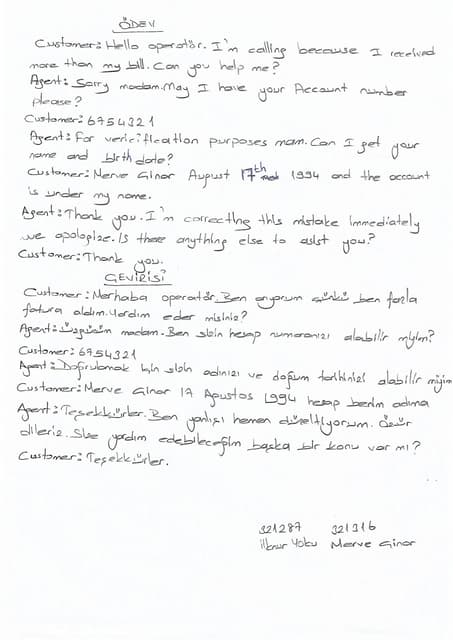 ÖDEV
Customer: Hello operatör. I'm calling because I received
more than my bill. Can you help me?
Agent: Sorry madam. May I have your Account number
please?
Customer: 6754321
Agent: For verification purposes mam. Can I get your
name and birth date?
Customer: Merve Ginar August 17th 1994 and the account
is under my name.
Agent: Thank you. I'm correcting this mistake immediately
we apologize. Is there anything else to asist you?
Customer: Thank you.
ÇEVİRİSİ
Customer: Merhaba operatör. Ben arıyorum çünkü ben fazla
fatura aldım. Yardım eder misiniz?
Agent: Üzgünüm madam. Ben sizin hesap numaranızı alabilir miyim?
Customer: 6754321
Agent: Doğrulamak için sizin adınızı ve doğum tarihinizi alabilir miyim
Customer: Merve Ginar 17 Agustos 1994 hesap benim adıma
Agent: Teşekkürler. Ben yanlışı hemen düzeltiyorum. Özür
dileriz. Size yardım edebileceğim başka bir konu var mı?
Customer: Teşekkürler.
321287 321316
İlknur Merve Ginar